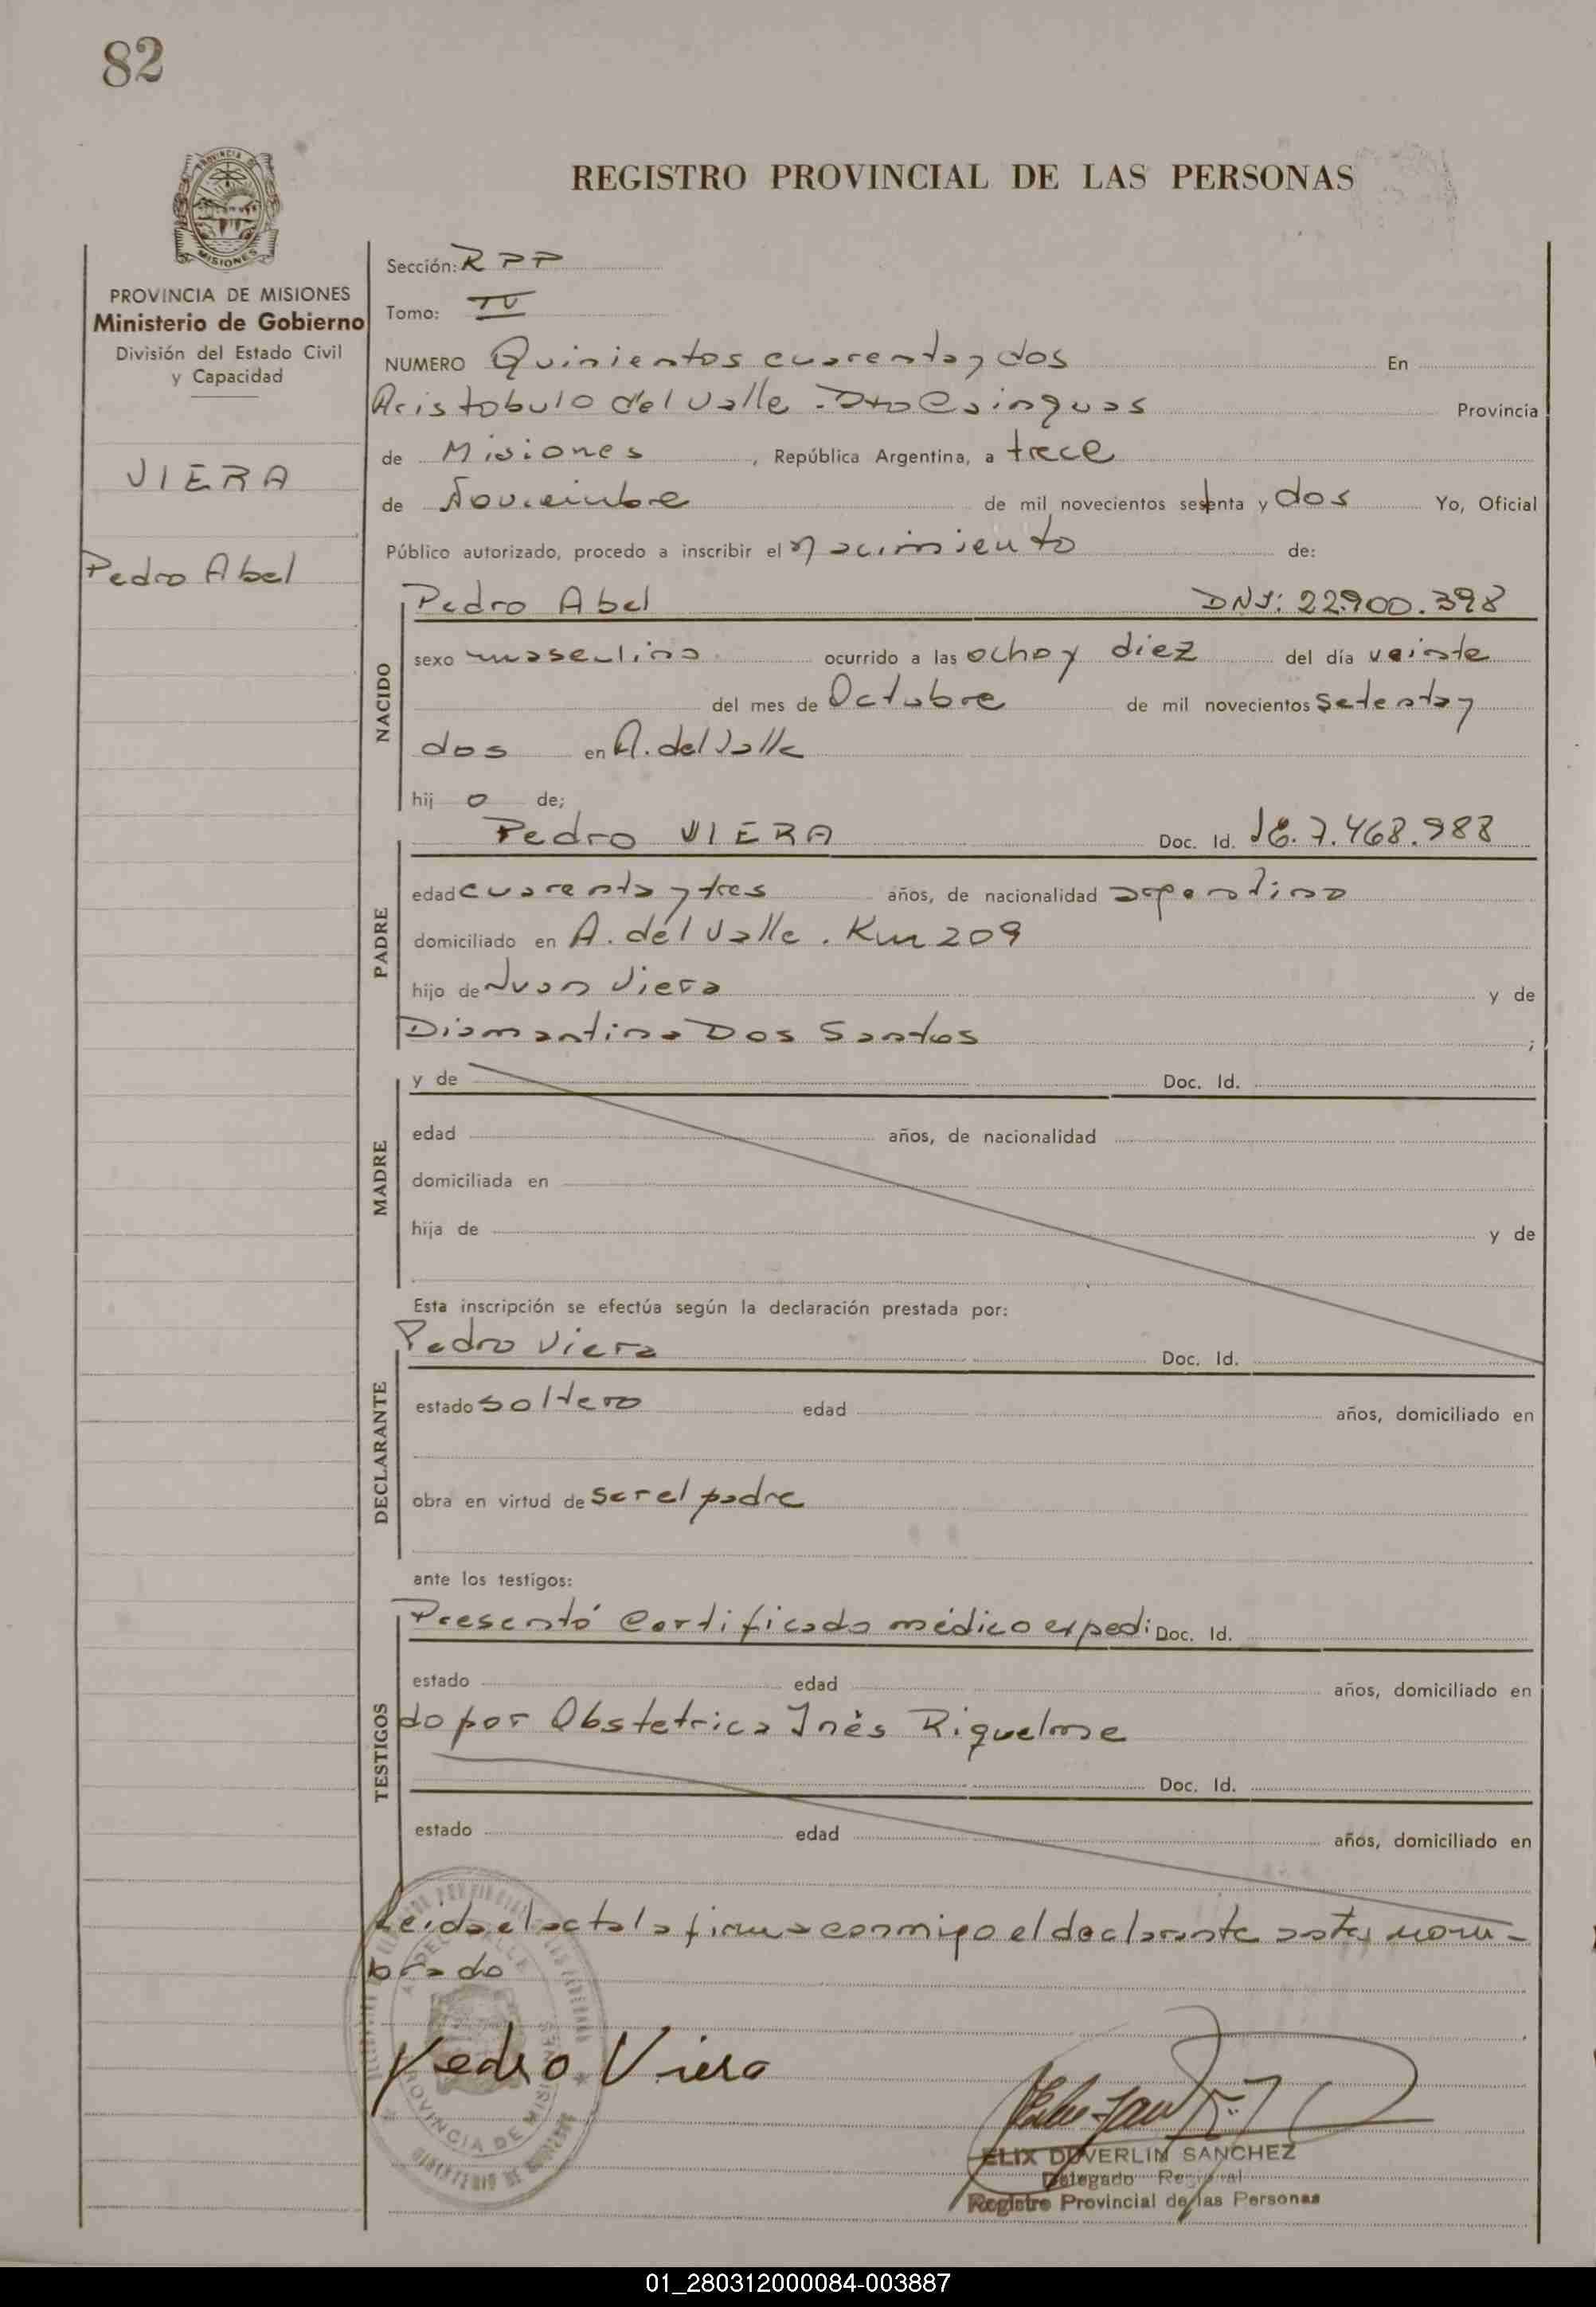 82
REGISTRO PROVINCIAL DE LAS PERSONAS
PROVINCIA DE MISIONES
Ministerio de Gobierno
División del Estado Civil
y Capacidad
VIERA
Pedro Abel
Sección: RPP
Tomo: IV
NUMERO Quinientos cuarenta y dos En
Aristobulo del Valle. Dto Cainguas Provincia
de Misiones, República Argentina, a trece
de Noviembre de mil novecientos setenta y dos Yo, Oficial
Público autorizado, procedo a inscribir el nacimiento de:
NACIDO
Pedro Abel DNI: 22.900.398
sexo masculino ocurrido a las ocho y diez del día veinte
del mes de Octubre de mil novecientos setenta y
dos en A. del Valle
hij o de;
PADRE
Pedro VIERA Doc. Id. LE. 7.468.988
edad cuarenta y tres años, de nacionalidad argentino
domiciliado en A. del Valle. Km 209
hijo de Juan Viera y de
Diamantina Dos Santos ;
MADRE
y de Doc. Id.
edad años, de nacionalidad
domiciliada en
hija de y de
Esta inscripción se efectúa según la declaración prestada por:
DECLARANTE
Pedro Viera Doc. Id.
estado soltero edad años, domiciliado en
obra en virtud de ser el padre
ante los testigos:
TESTIGOS
Presentó Certificado médico expedi Doc. Id.
estado edad años, domiciliado en
do por Obstetrica Inés Riquelme
Doc. Id.
estado edad años, domiciliado en
Leida el acta la firma conmigo el declarante antes nom-
brado
Pedro Viera
ELIX DUVERLIN SANCHEZ
Delegado Regional
Registro Provincial de las Personas
PROVINCIA DE MISIONES
01_280312000084-003887